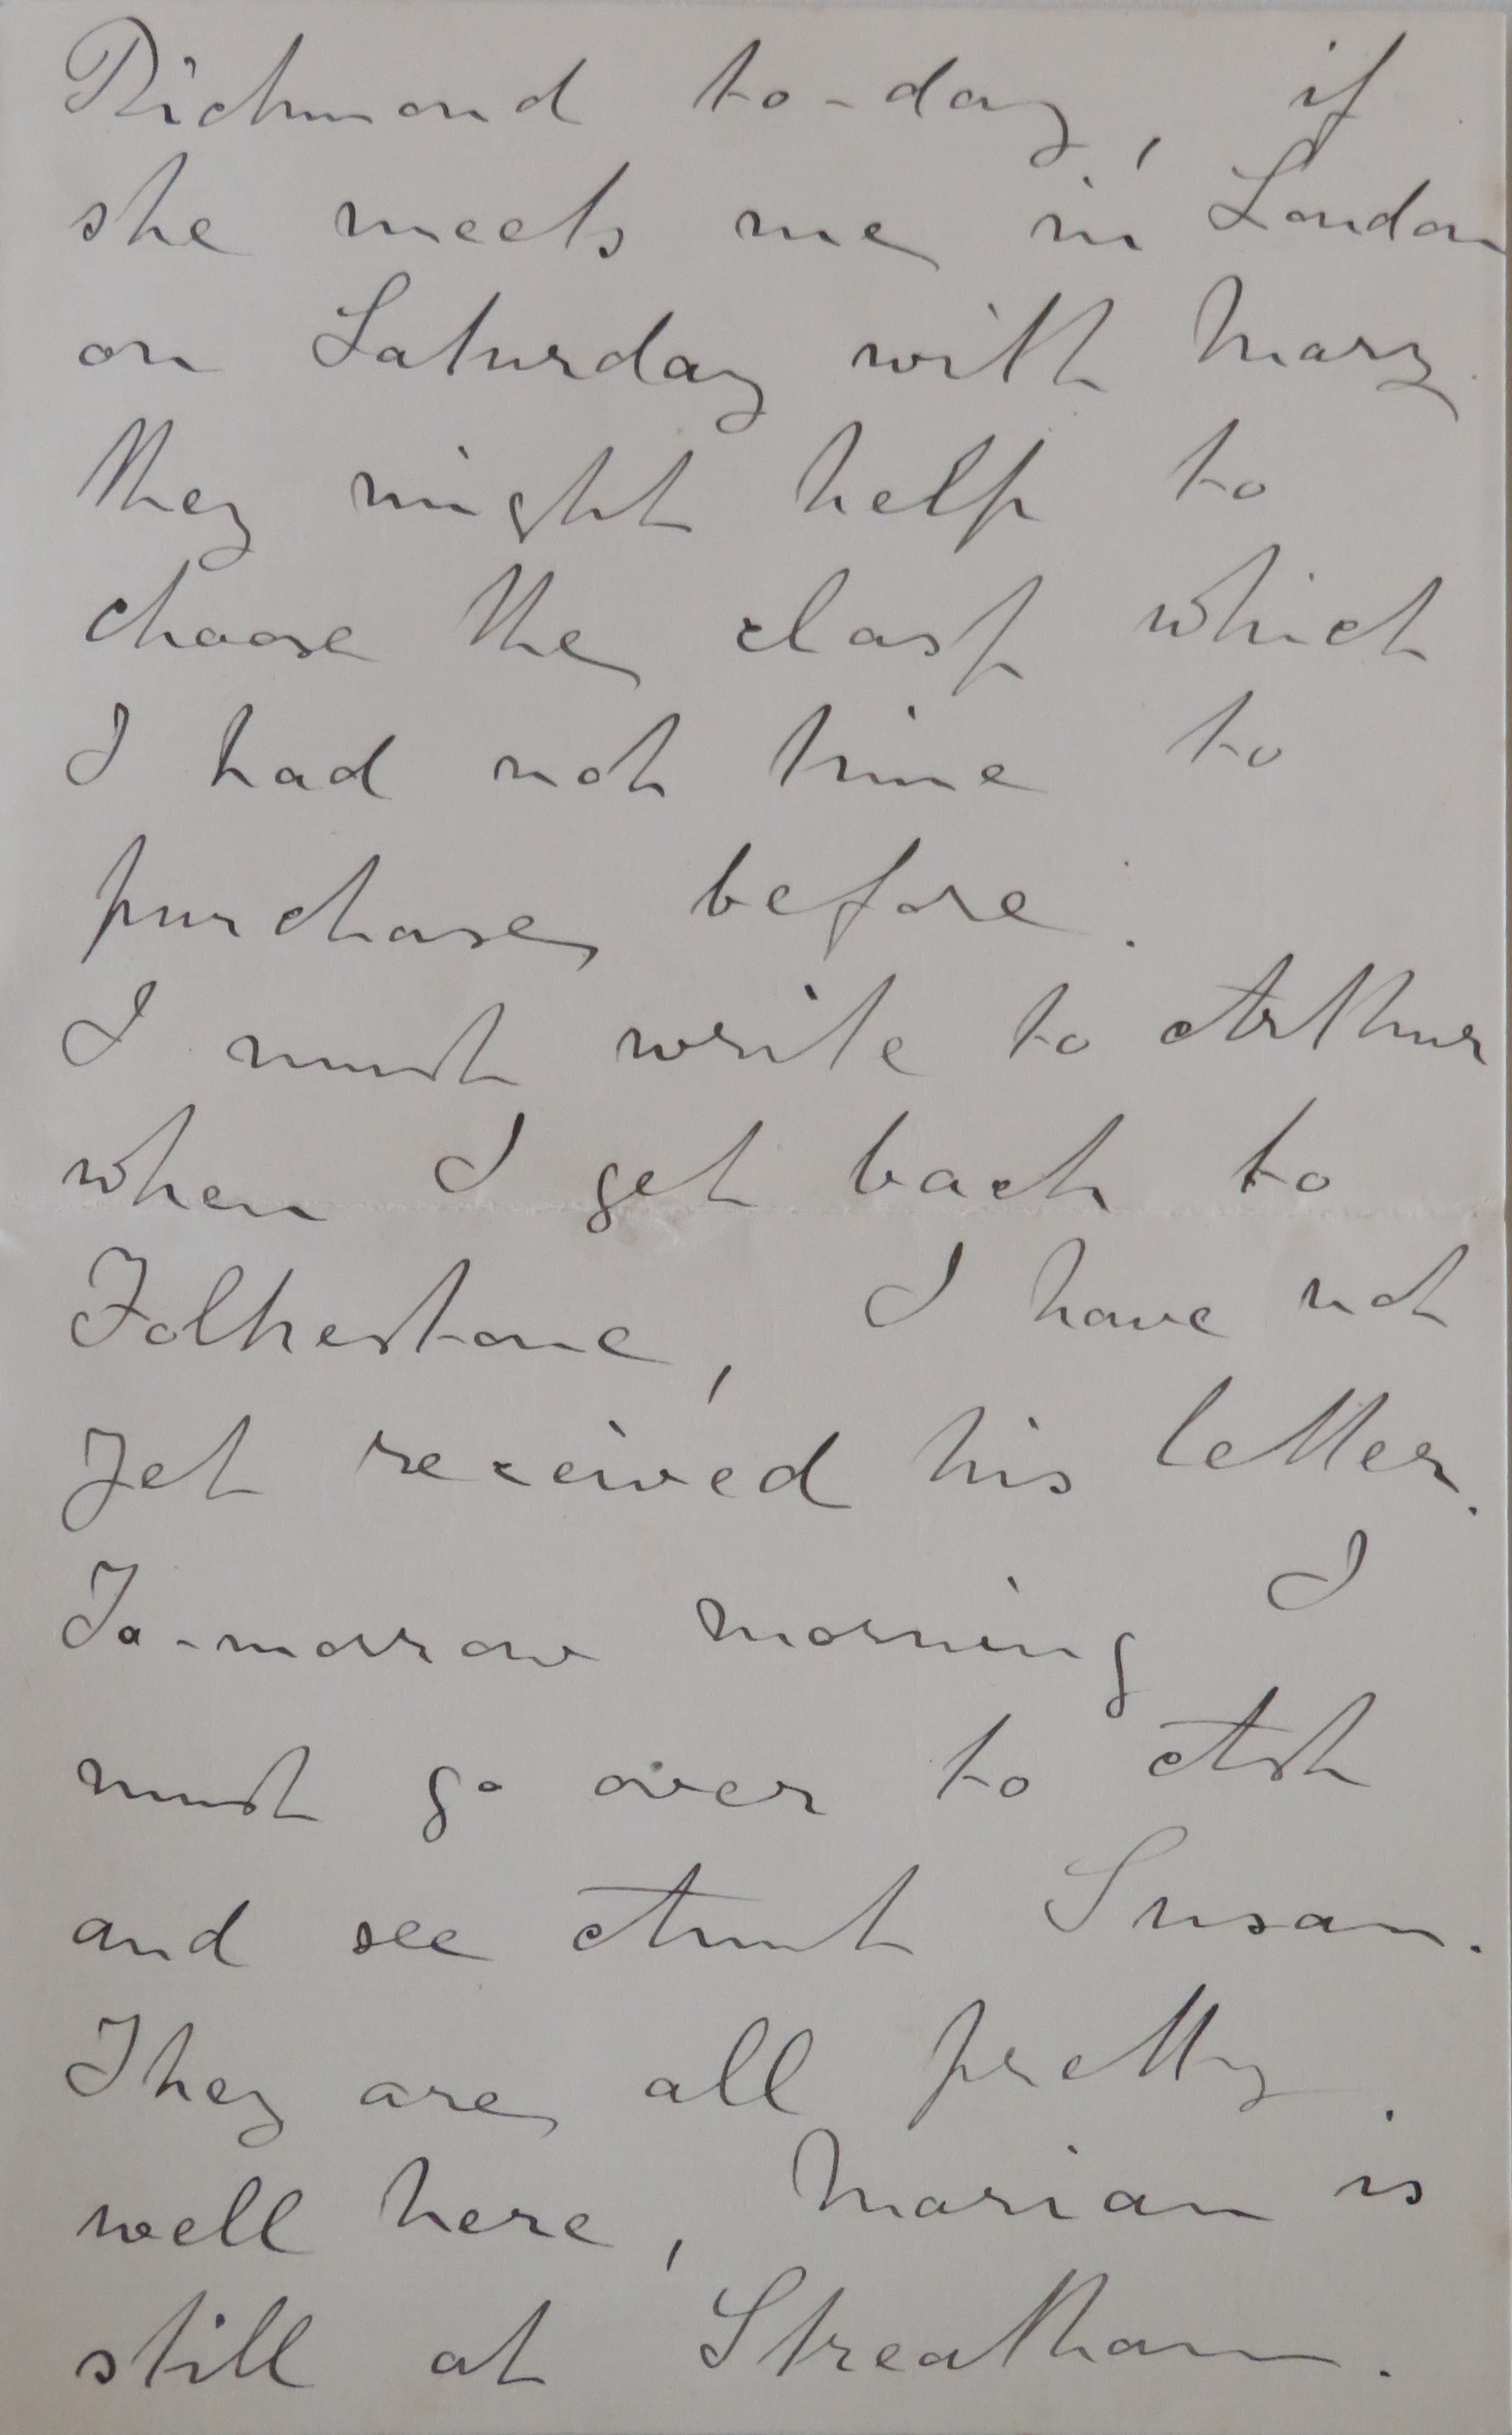 Richmond to-day, if
she meets me in London
on Saturday with Mary
they might help to
choose the clasp which
I had not time to
purchase before.
I must write to Arthur
when I get back to
Folkestone, I have not
yet received his letter.
To-morrow morning I
must go over to Ash
and see Aunt Susan.
They are all pretty
well here, Marian is
still at Streatham.